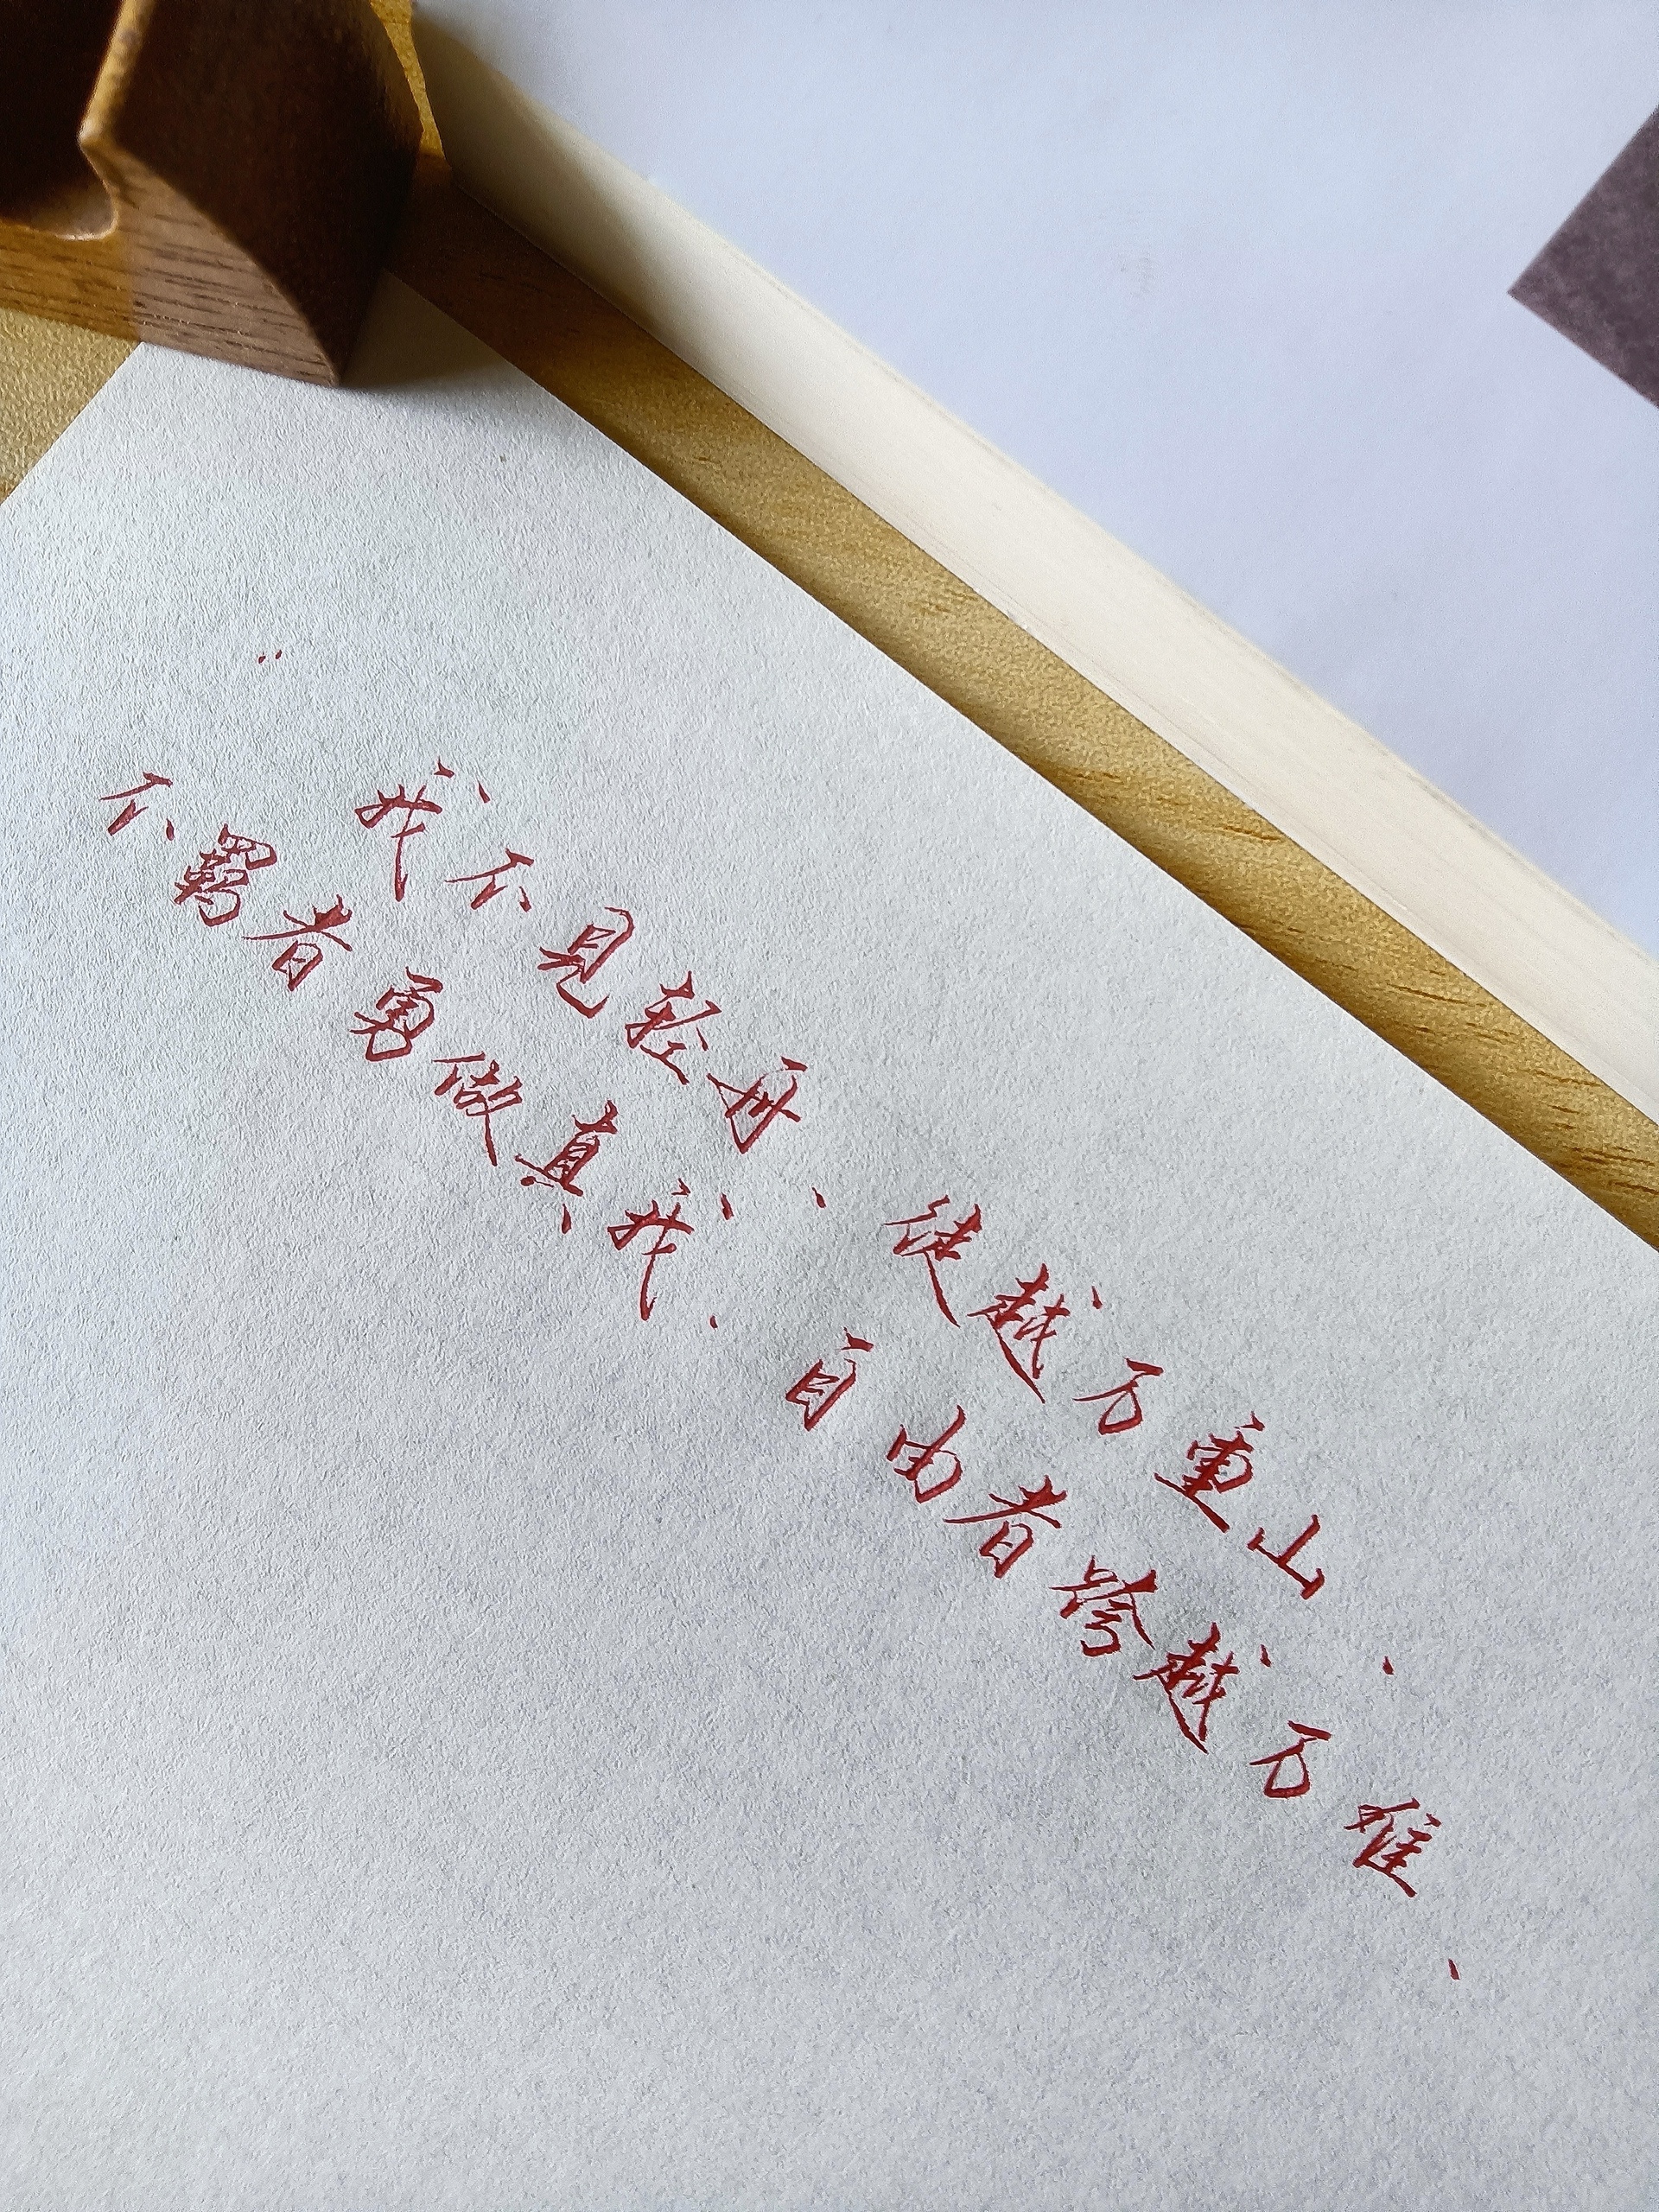 “我不見轻舟，徒越万重山，
不羁者勇做真我，自由者跨越万难，